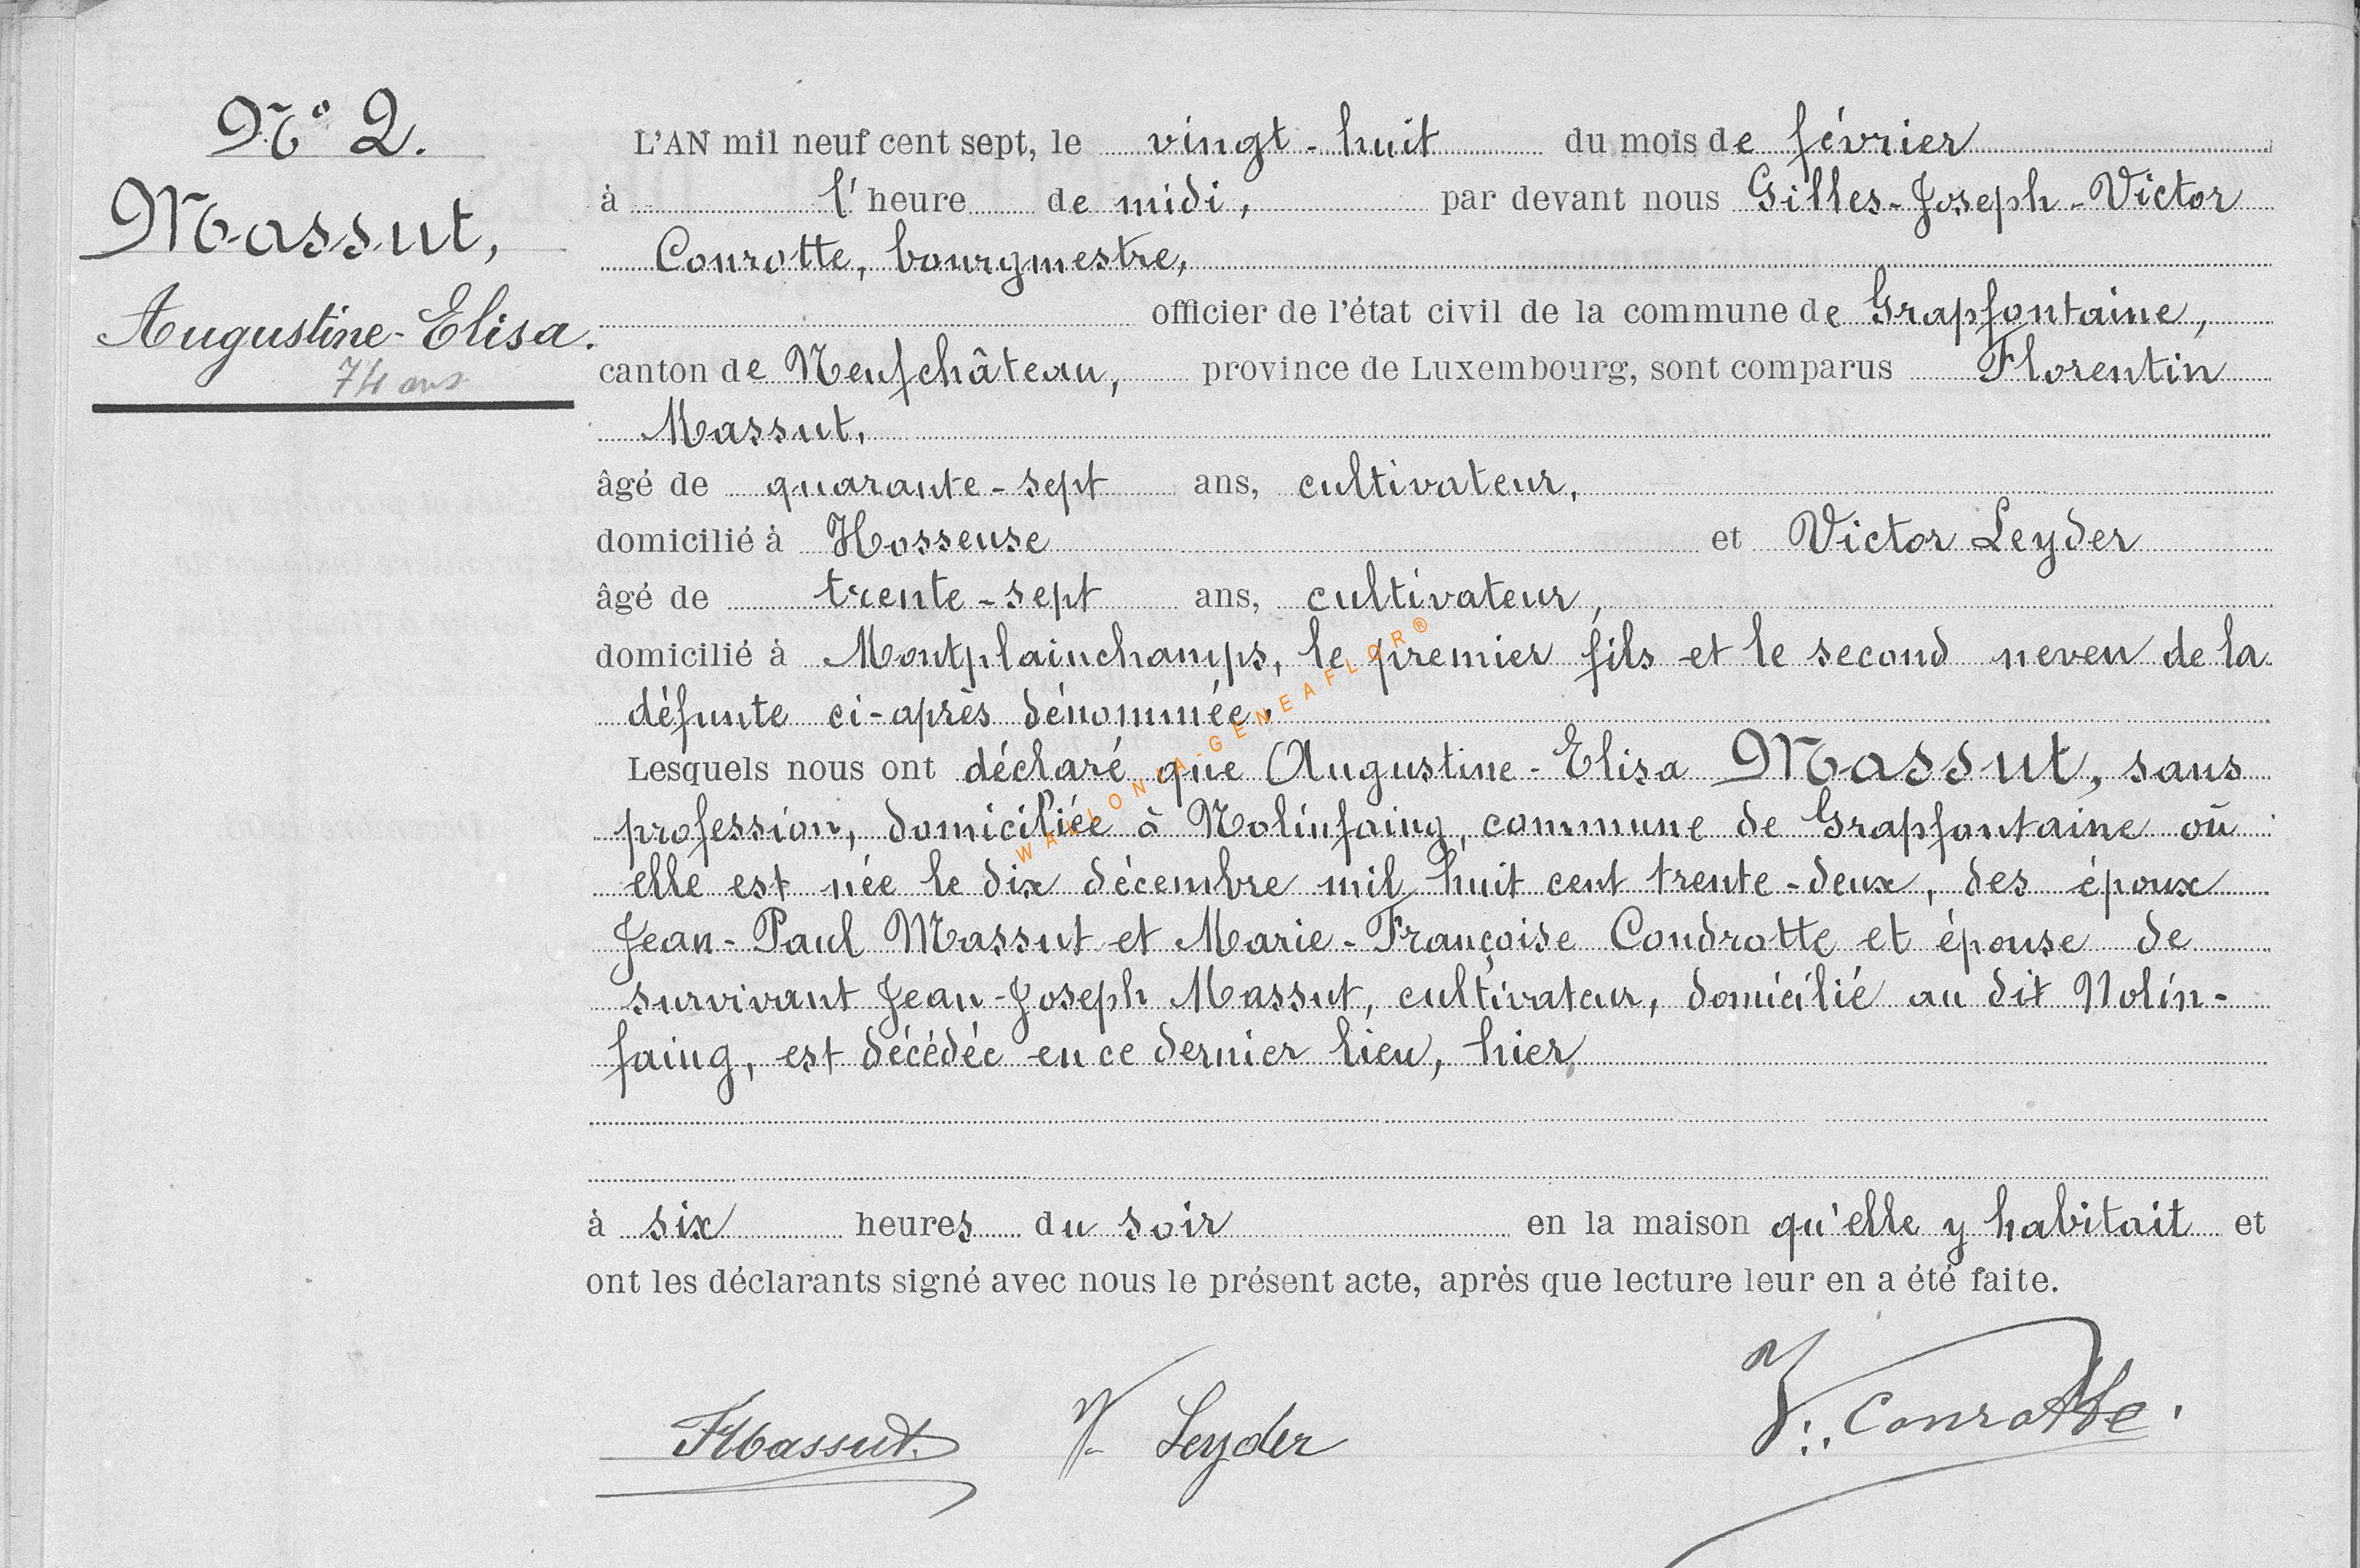 N° 2.
Massut,
Augustine-Elisa.
74 ans
L'AN mil neuf cent sept, le vingt-huit du mois de février
à l'heure de midi, par devant nous Gilles-Joseph-Victor
Conrotte, bourgmestre,
officier de l'état civil de la commune de Grapfontaine,
canton de Neufchâteau, province de Luxembourg, sont comparus Florentin
Massut,
âgé de quarante-sept ans, cultivateur,
domicilié à Hosseuse et Victor Leyder
âgé de trente-sept ans, cultivateur,
domicilié à Montplainchamps, le premier fils et le second neveu de la
défunte ci-après dénommée.
Lesquels nous ont déclaré que Augustine-Elisa Massut, sans
profession, domiciliée à Nolinfaing, commune de Grapfontaine où
elle est née le dix décembre mil huit cent trente-deux, des époux
Jean-Paul Massut et Marie-Françoise Condrotte et épouse de
survivant Jean-Joseph Massut, cultivateur, domicilié au dit Nolin-
faing, est décédée en ce dernier lieu, hier,
à six heures du soir en la maison qu'elle y habitait et
ont les déclarants signé avec nous le présent acte, après que lecture leur en a été faite.
FMassut. V. Leyder V. Conrotte.
WALLONIA-GENEAFLOR®